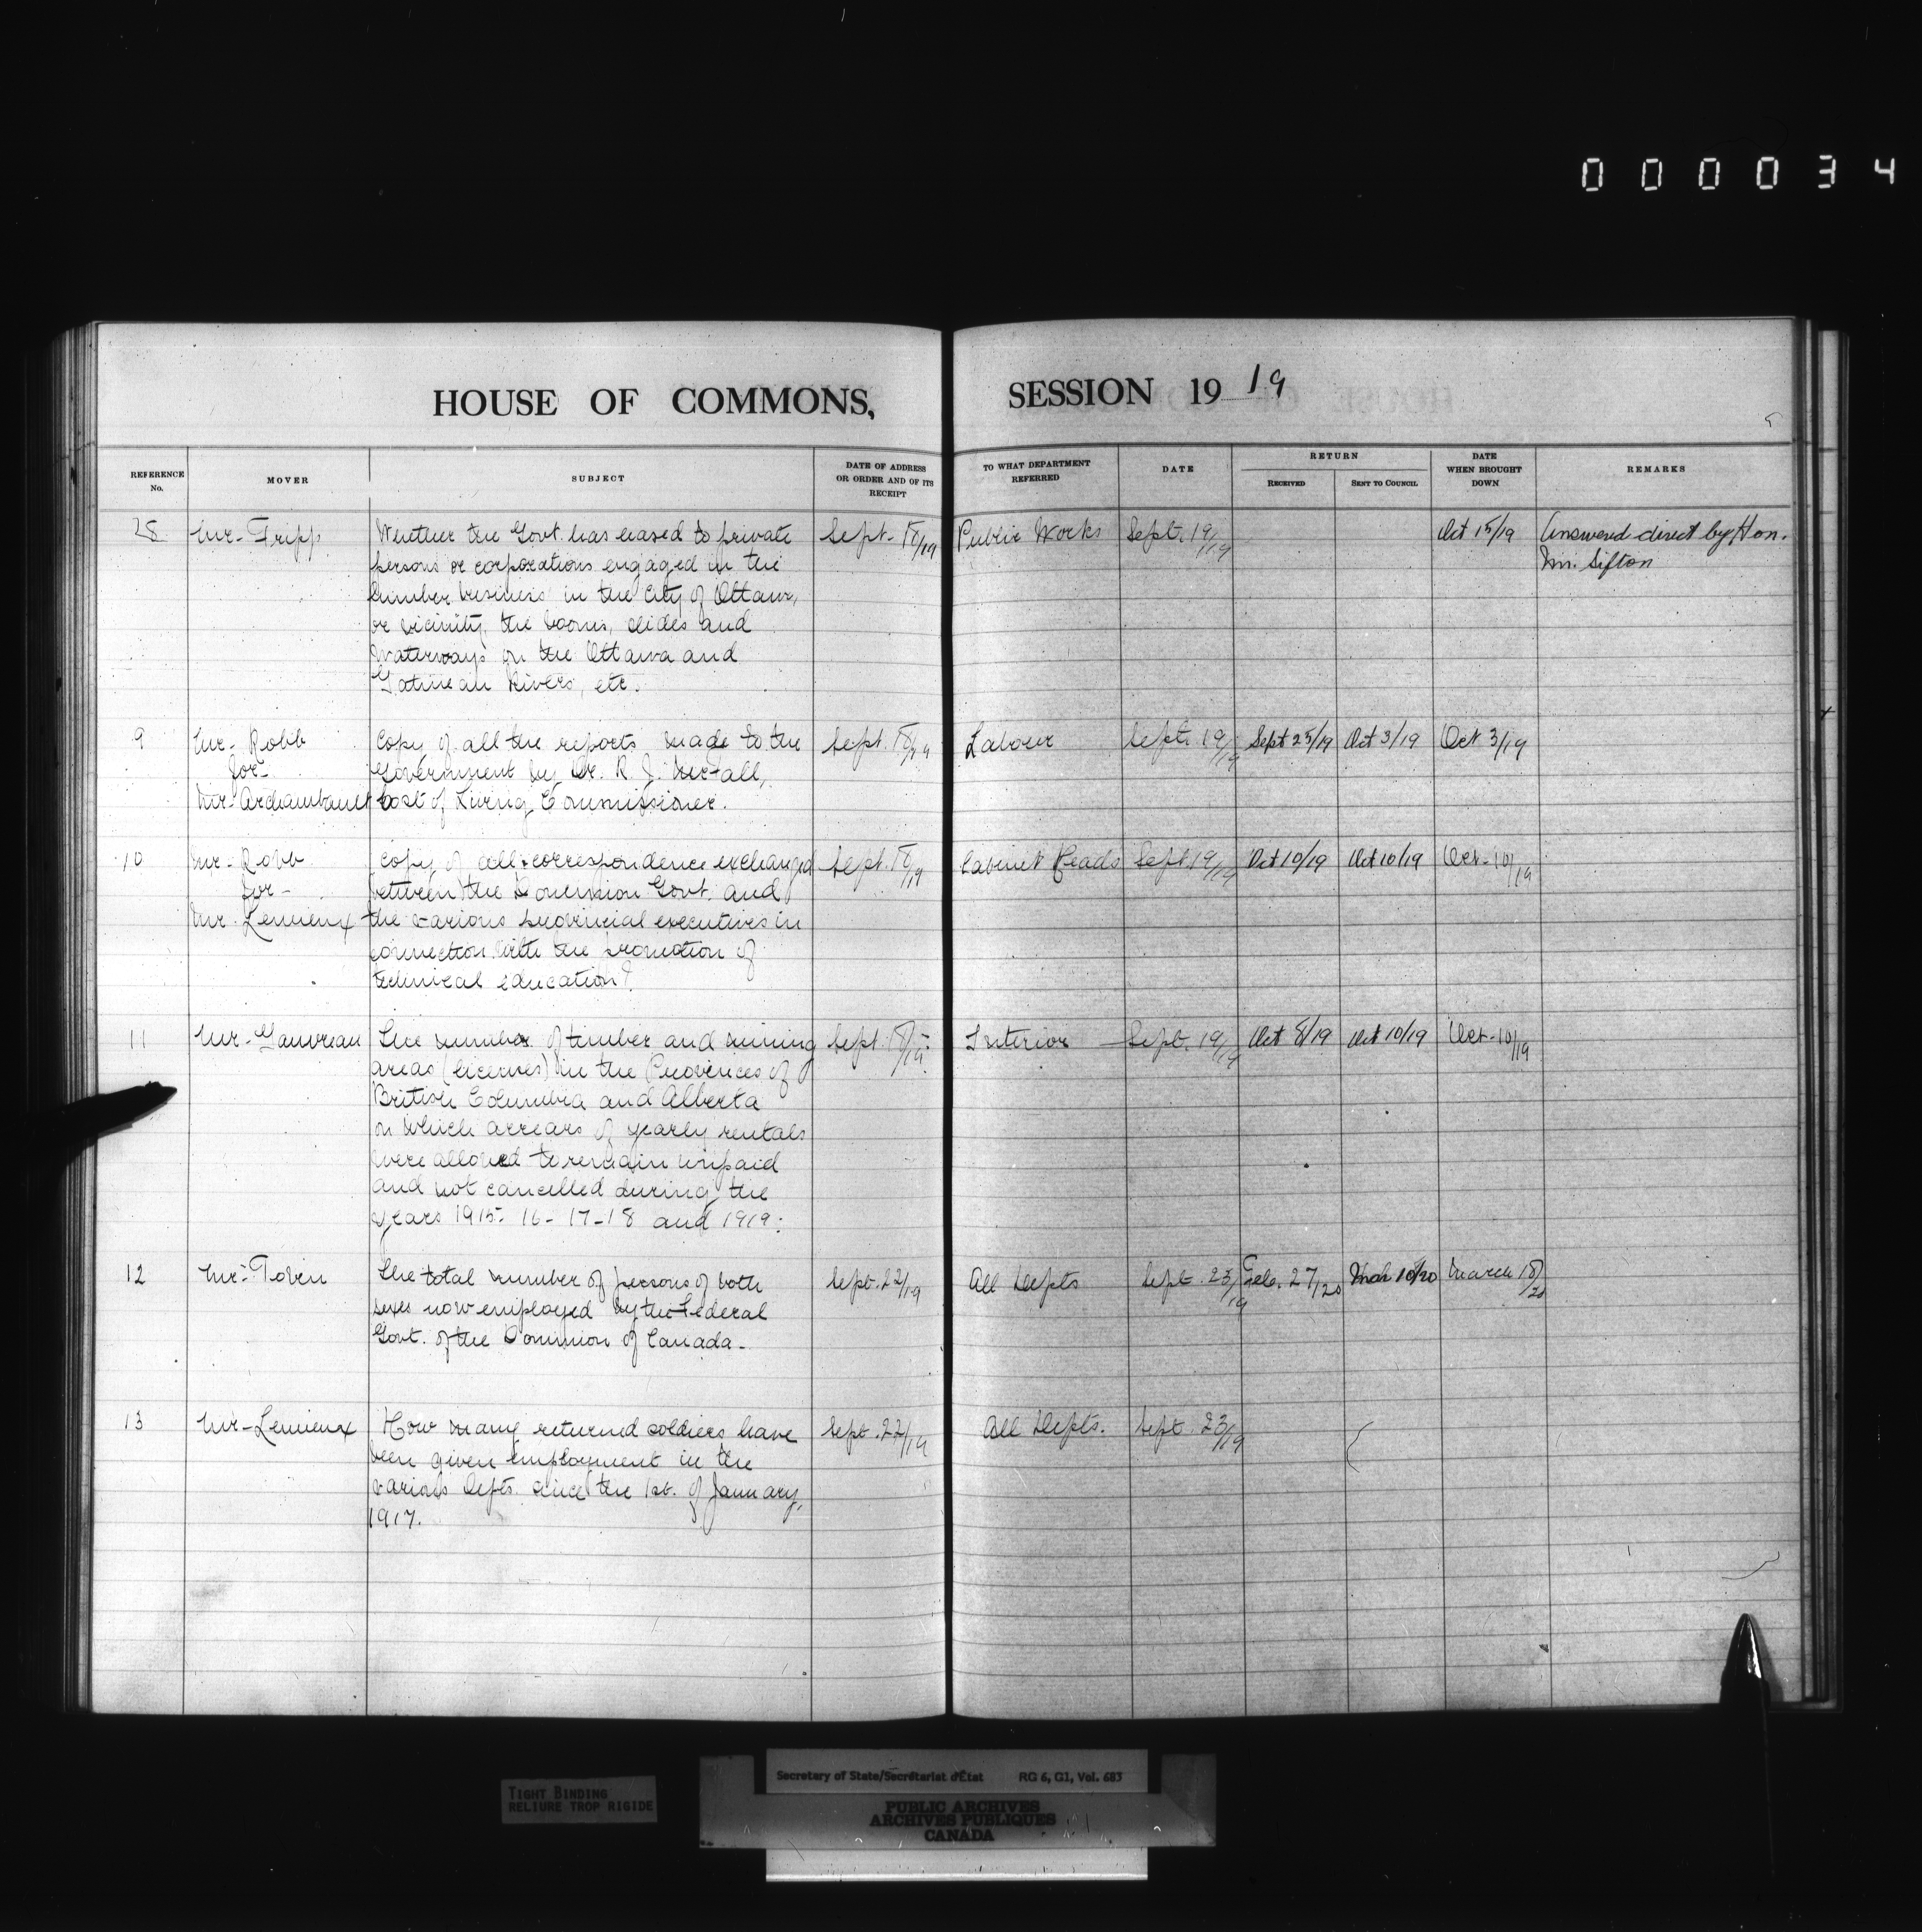 000034
HOUSE OF COMMONS, SESSION 1919
REFERENCE No. MOVER SUBJECT DATE OF ADDRESS OR ORDER AND OF ITS RECEIPT TO WHAT DEPARTMENT REFERRED DATE RETURN RECEIVED SENT TO COUNCIL DATE WHEN BROUGHT DOWN REMARKS
28 Mr- Tripp Whether the Govt. has leased to private Sept. 18/19 Public Works Sept. 19/19 Oct 15/19 Answered direct by Hon.
persons or corporations engaged in the Mr. Sifton
lumber business in the City of Ottawa,
or vicinity, the booms, slides and
Waterways on the Ottawa and
Gatineau Rivers, etc.
9 Mr- Robb Copy of all the reports made to the Sept. 18/19 Labour Sept. 19/19 Sept 25/19 Oct 3/19 Oct 3/19
for- Government by Dr. R. J. McFall,
Mr. Archambault Cost of Living Commissioner.
10 Mr- Robb Copy of all correspondence exchanged Sept. 18/19 Cabinet Heads Sept 19/19 Oct 10/19 Oct 10/19 Oct-10/19
for- between the Dominion Govt. and
Mr. Lemieux the various provincial executives in
connection with the promotion of
technical education?
11 Mr- Gauvreau The number of timber and mining Sept. 18/19. Interior Sept. 19/19 Oct 8/19 Oct 10/19 Oct-10/19
areas (licenses) in the Provinces of
British Columbia and Alberta
on which arrears of yearly rentals
were allowed to remain unpaid
and not cancelled during the
years 1915- 16- 17-18 and 1919:
12 Mr- Tobin The total number of persons of both Sept. 22/19 All Depts Sept. 23/19 Feb. 27/20 Mch 18/20 March 18/20
sexes now employed by the Federal
Govt. of the Dominion of Canada-
13 Mr-Lemieux How many returned soldiers have Sept. 22/19 All Depts. Sept. 23/19
been given employment in the
various Depts. since the 1st. of January,
1917.
Secretary of State/Secrétariat d'État RG 6, G1, Vol. 683
TIGHT BINDING
RELIURE TROP RIGIDE
PUBLIC ARCHIVES
ARCHIVES PUBLIQUES
CANADA